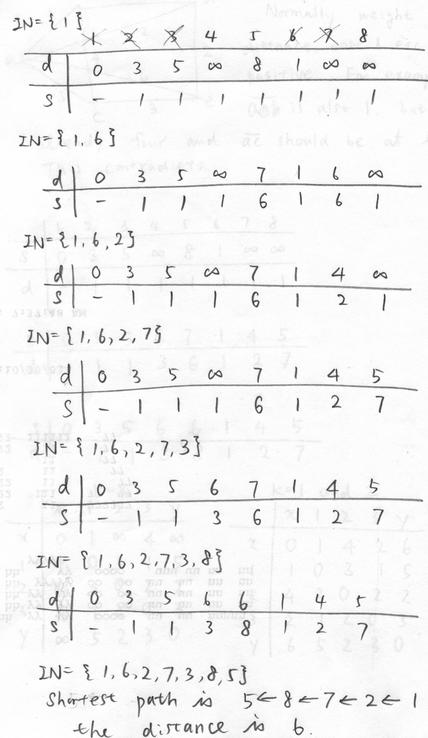 IN={1}
1 2 3 4 5 6 7 8
d | 0 3 5 ∞ 8 1 ∞ ∞
s | - 1 1 1 1 1 1 1
IN={1,6}
d | 0 3 5 ∞ 7 1 6 ∞
s | - 1 1 1 6 1 6 1
IN={1,6,2}
d | 0 3 5 ∞ 7 1 4 ∞
s | - 1 1 1 6 1 2 1
IN={1,6,2,7}
d | 0 3 5 ∞ 7 1 4 5
s | - 1 1 1 6 1 2 7
IN={1,6,2,7,3}
d | 0 3 5 6 7 1 4 5
s | - 1 1 3 6 1 2 7
IN={1,6,2,7,3,8}
d | 0 3 5 6 6 1 4 5
s | - 1 1 3 8 1 2 7
IN={1,6,2,7,3,8,5}
Shortest path is 5←8←7←2←1
the distance is 6.